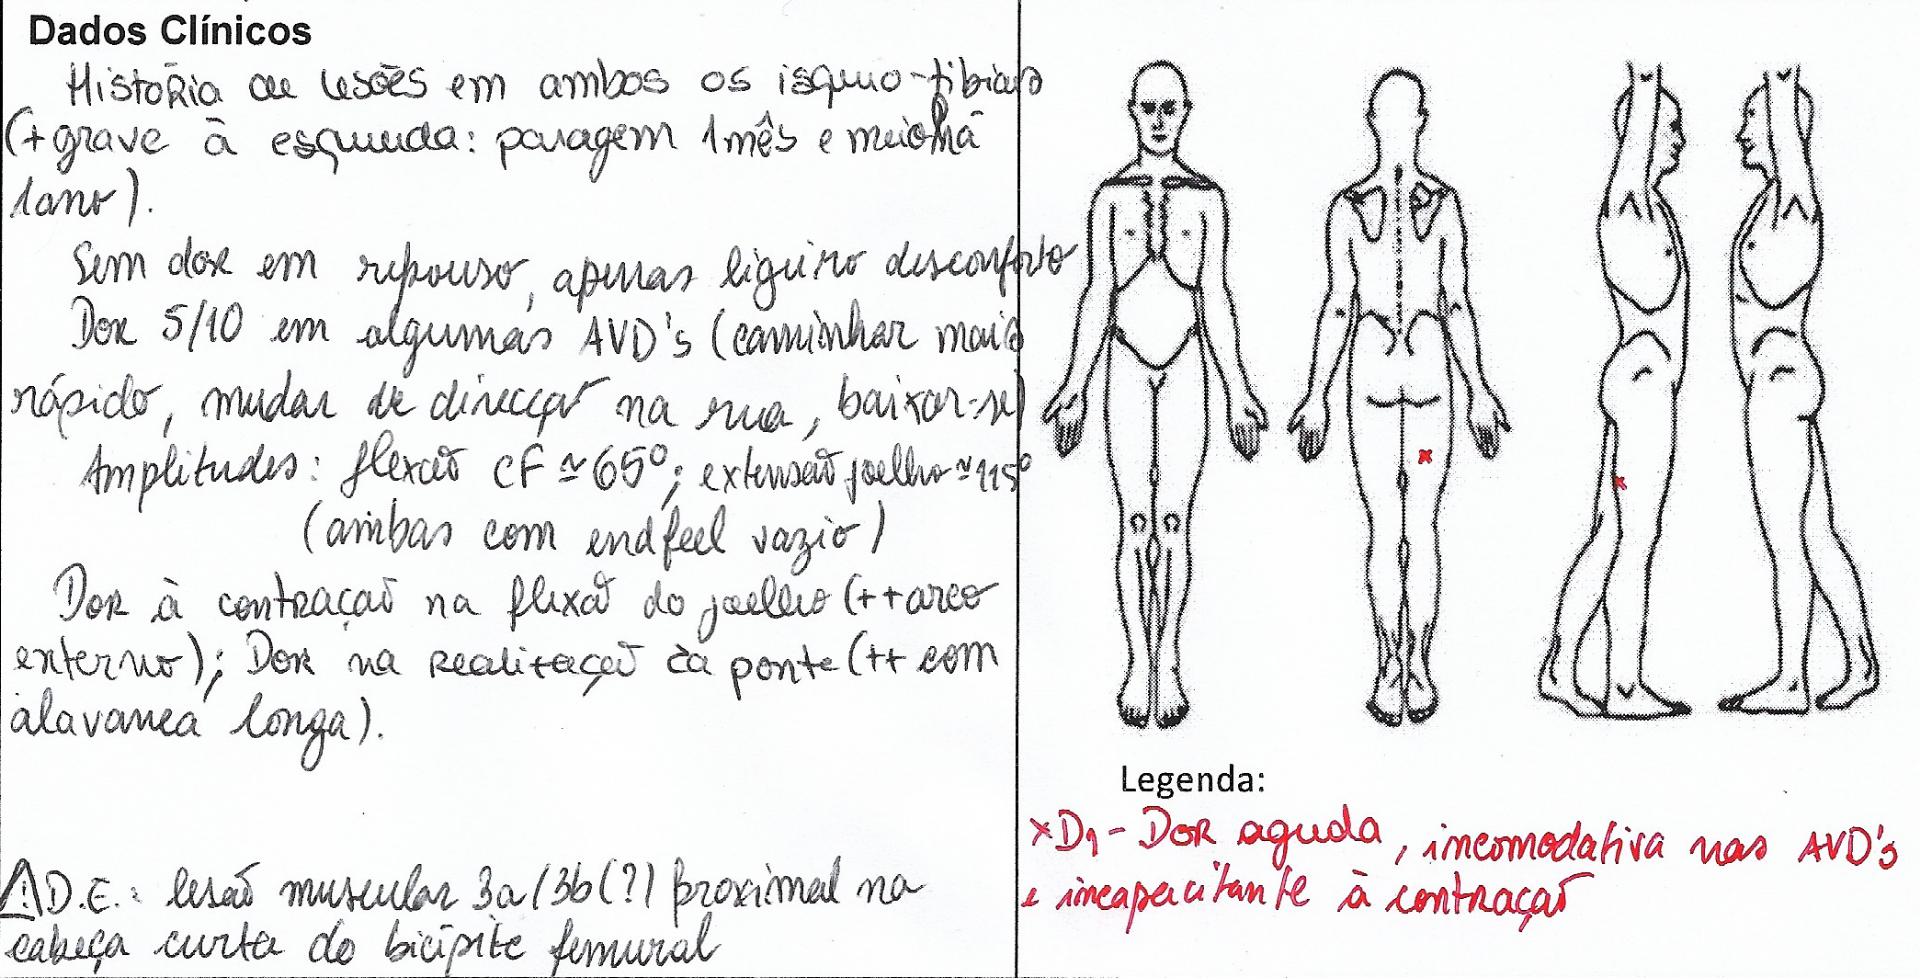 Dados Clínicos
História de lesões em ambos os isquio-tibiais
(+ grave à esquerda: paragem 1 mês e meio há
1 ano).
Sem dor em repouso, apenas ligeiro desconforto
Dor 5/10 em algumas AVD's (caminhar mais
rápido, mudar de direcção na rua, baixar-se)
Amplitudes: flexão CF ≃ 65º; extensão joelho ≃ 115º
(ambas com endfeel vazio)
Dor à contração na flexão do joelho (++ arco
externo); Dor na realização da ponte (++ com
alavanca longa).
⚠ D.E.: lesão muscular 3a/3b(?) proximal na
cabeça curta do bicípite femural
Legenda:
x D1 - Dor aguda, incomodativa nas AVD's
e incapacitante à contração